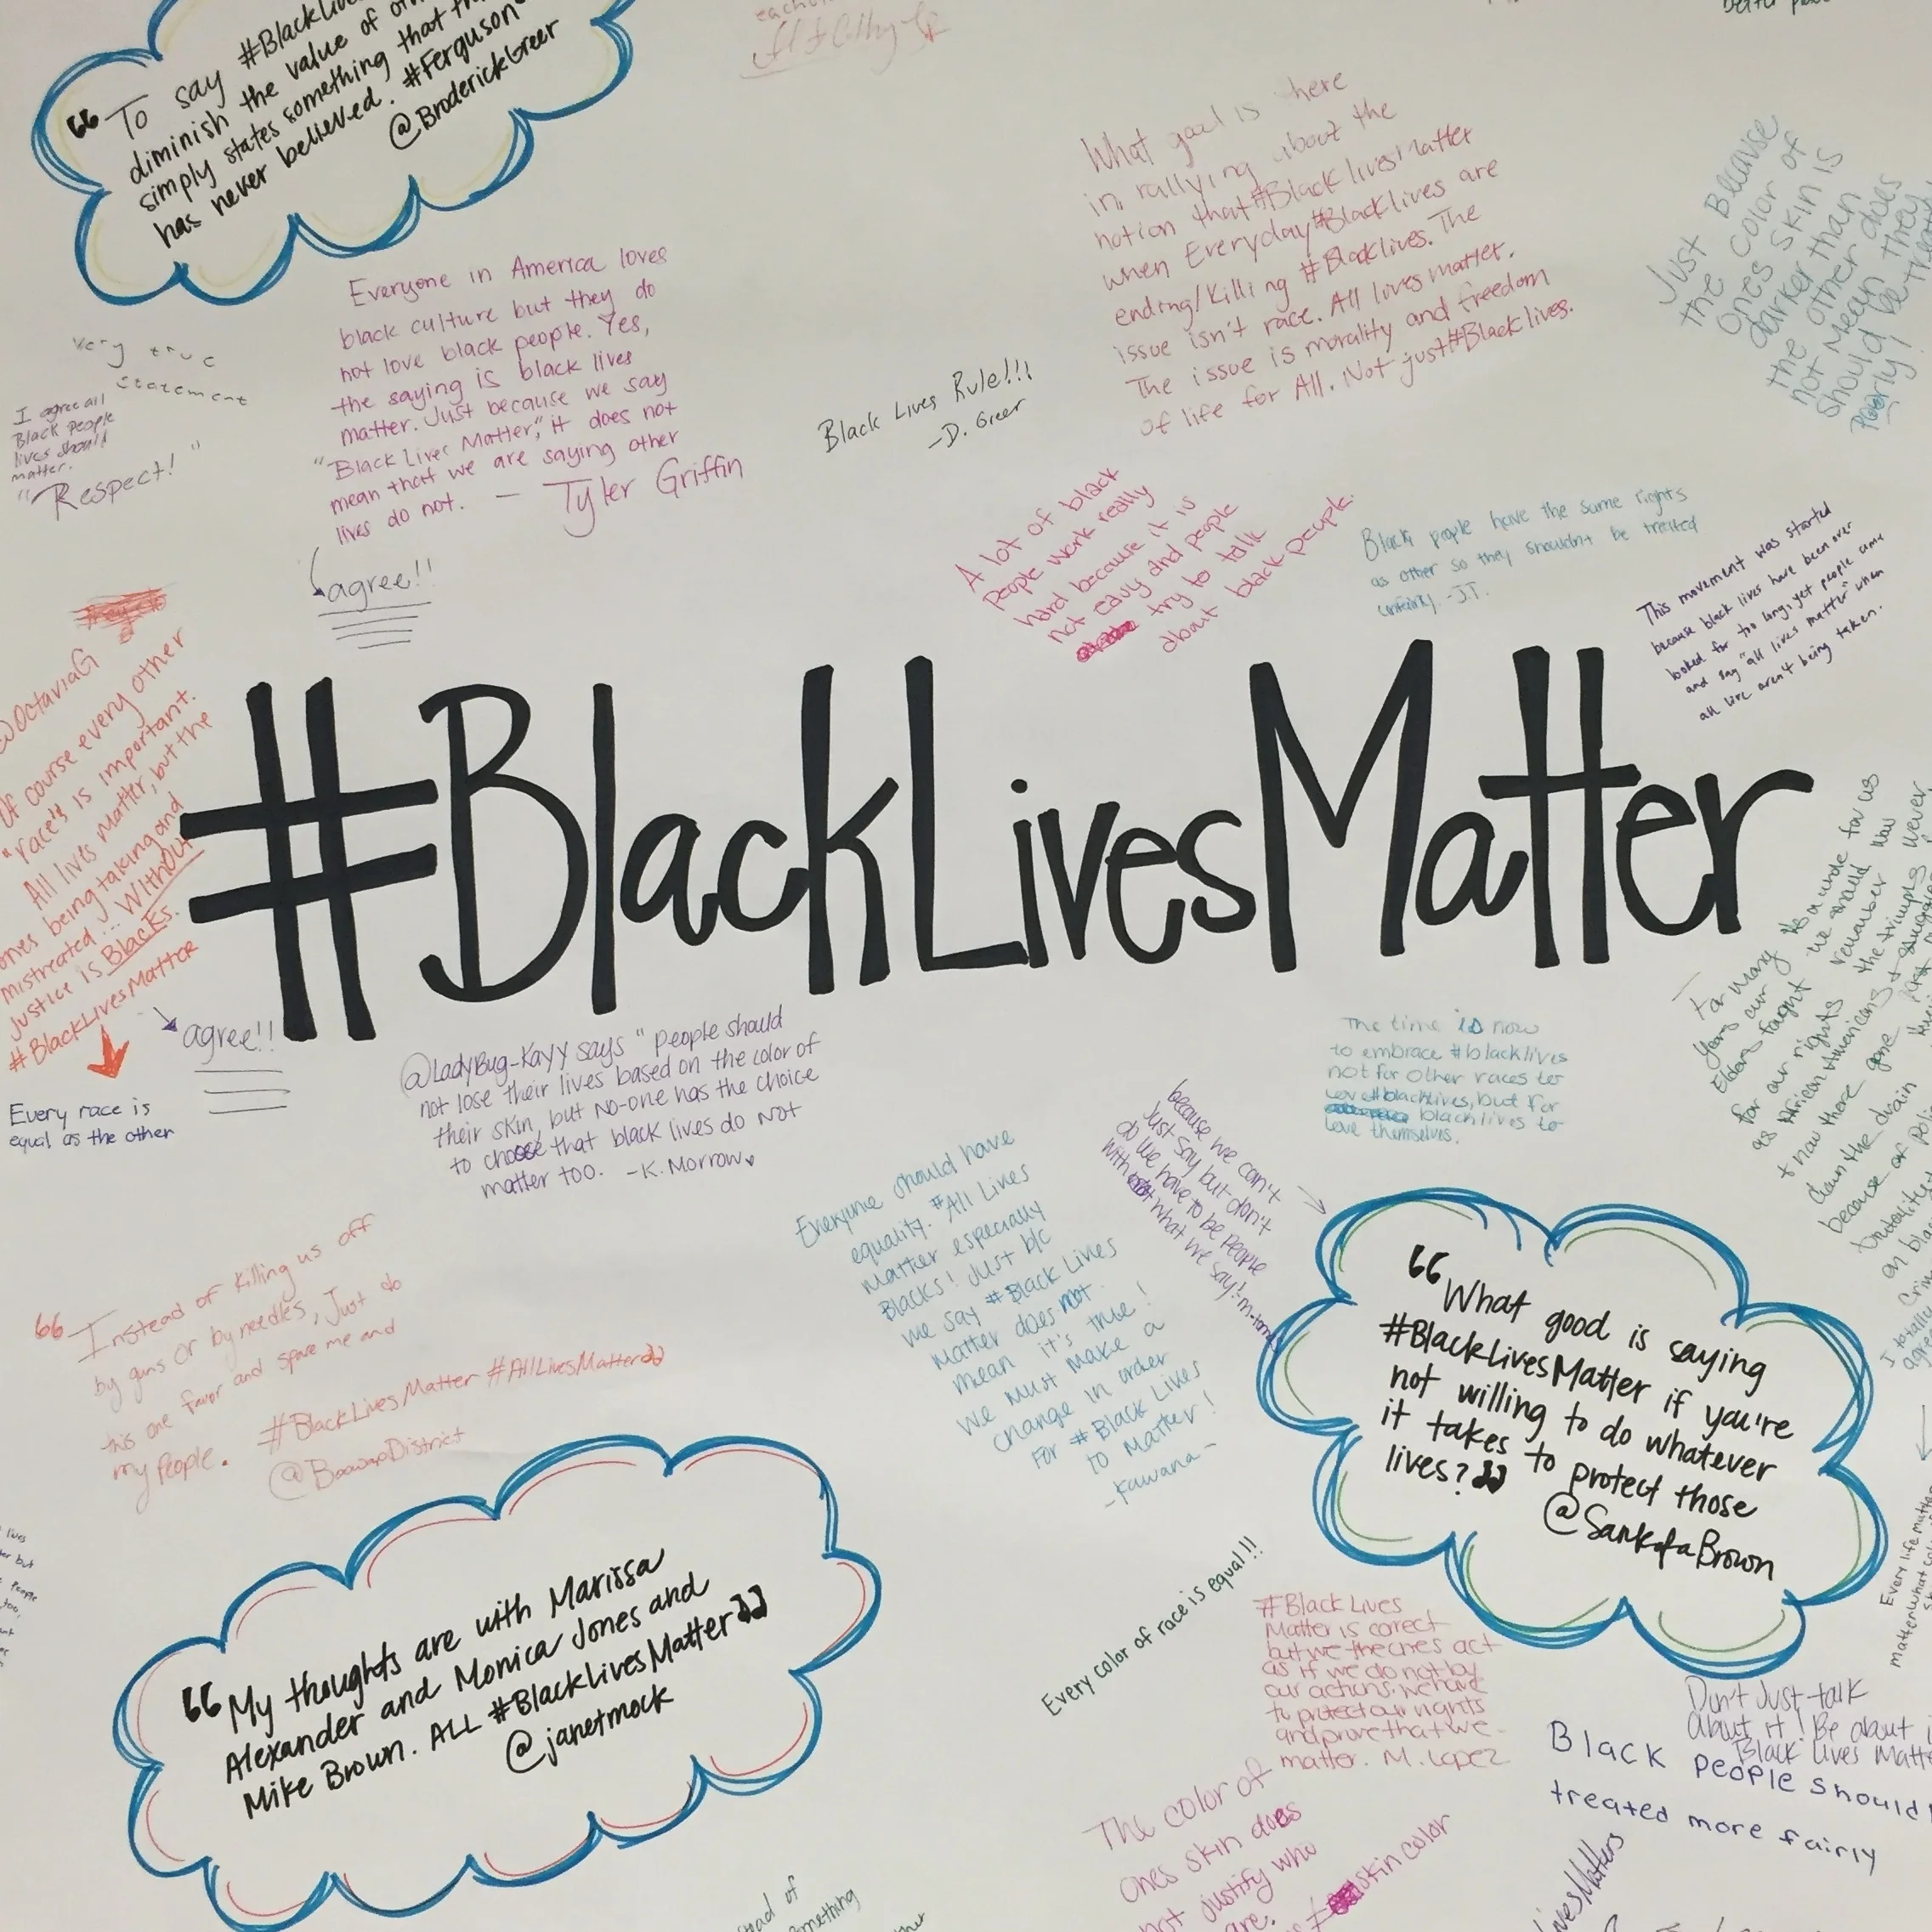 “To say #BlackLives
diminish the value of
simply states something that
has never believed. #Ferguson
@BroderickGreer
What good is there
in rallying about the
notion that #BlackLivesMatter
when Everyday #Blacklives are
ending/killing #Blacklives. The
issue isn't race. All lives matter.
The issue is morality and freedom
of life for All. Not just #Blacklives.
Just Because
the color of
ones skin is
darker than
the other does
not mean they
should be
poorly!
Everyone in America loves
black culture but they do
not love black people. Yes,
the saying is black lives
matter. Just because we say
"Black Lives Matter," it does not
mean that we are saying other
lives do not. — Tyler Griffin
agree!!
Very true
statement
I agree all
Black people
lives should
matter.
"Respect!"
Black Lives Rule!!!
-D. Greer
A lot of black
people work really
hard because it is
not easy and people
try to talk
about black people.
Black people have the same rights
as other so they shouldn't be treated
unfairly. -J.T.
This movement was started
because black lives have been over
looked for too long, yet people come
and say "all lives matter" when
all live aren't being taken.
@OctaviaG
Of course every other
"race's is important.
All lives matter, but the
ones being taking and
mistreated... Without
justice is Blacks.
#BlackLivesMatter
agree!!
Every race is
equal as the other
#BlackLivesMatter
@LadyBug-Kayy says "people should
not lose their lives based on the color of
their skin, but no-one has the choice
to choose that black lives do not
matter too. -K. Morrow
The time is now
to embrace #blacklives
not for other races to
love #blacklives, but for
blacklives to
love themselves.
For many
years our
Elders fought
for our rights
as African Americans
+ now there gone
down the drain
because of
Its a wude for us
we should now
remember
the triumphs
because we can't
just say but don't
do we have to be people
with what we say!
Everyone should have
equality. #All Lives
Matter especially
Blacks! Just b/c
we say #Black Lives
Matter does not
mean it's true!
We must make a
change in order
For #Black Lives
to Matter!
-Kawana-
“Instead of killing us off
by guns or by needles, Just do
this one favor and spare me and
my people. #BlackLivesMatter #AllLivesMatter”
@BoowapDistrict
“What good is saying
#BlackLivesMatter if you're
not willing to do whatever
it takes to protect those
lives?”
@SankofaBrown
“My thoughts are with Marissa
Alexander and Monica Jones and
Mike Brown. ALL #BlackLivesMatter”
@janetmock
Every color of race is equal!!!
#Black Lives
Matter is correct
but we the ones act
as if we do not by
our actions. We have
to protect our rights
and prove that we
matter. M. Lopez
I totally
agree
Every life matter
Don't Just talk
About it! Be about
Black Lives Matter
Black people should
treated more fairly
The color of
ones skin does
not justify who
are.
skin color